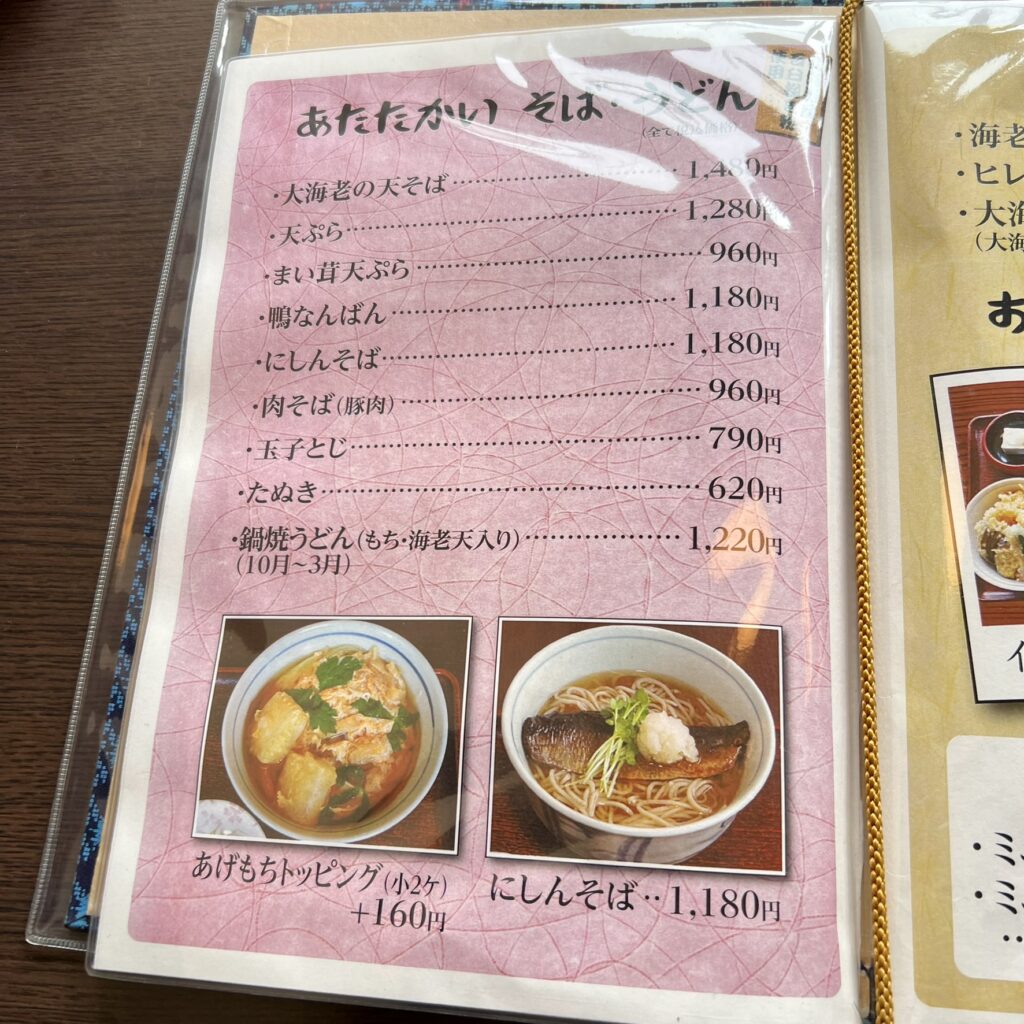 あたたかい そば・うどん
(全て税込価格)
・大海老の天そば……1,480円
・天ぷら……1,280円
・まい茸天ぷら……960円
・鴨なんばん……1,180円
・にしんそば……1,180円
・肉そば(豚肉)……960円
・玉子とじ……790円
・たぬき……620円
・鍋焼うどん(もち・海老天入り)……1,220円
(10月~3月)
あげもちトッピング(小2ケ)
+160円
にしんそば‥1,180円
・海老
・ヒレ
・大海
(大海
お
・ミ
・ミ